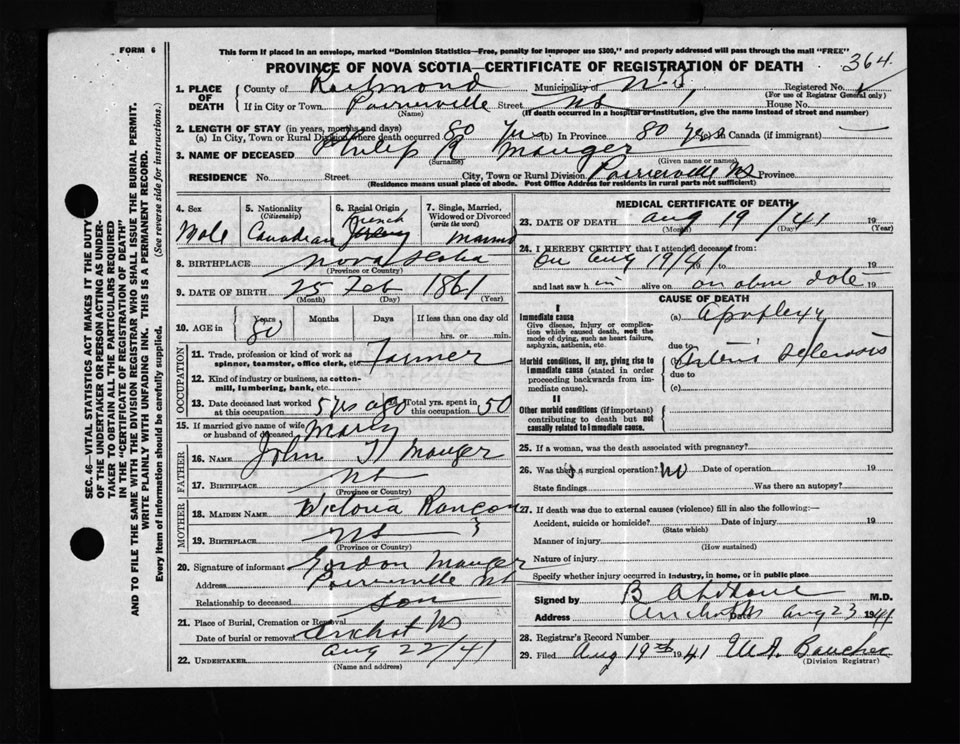 FORM 6
This form if placed in an envelope, marked "Dominion Statistics—Free, penalty for improper use $300," and properly addressed will pass through the mail "FREE"
PROVINCE OF NOVA SCOTIA—CERTIFICATE OF REGISTRATION OF DEATH
364
1. PLACE OF DEATH
County of Richmond Municipality of N.S. Registered No.
(For use of Registrar General only)
If in City or Town Poirierville Street NS House No.
(Name) (If death occurred in a hospital or institution, give the name instead of street and number)
2. LENGTH OF STAY (in years, months and days)
(a) In City, Town or Rural Division where death occurred 80 yrs (b) In Province 80 yrs (c) In Canada (if immigrant)
3. NAME OF DECEASED Philip R Mauger
(Surname) (Given name or names)
RESIDENCE No. Street City, Town or Rural Division Poirierville NS Province
(Residence means usual place of abode. Post Office Address for residents in rural parts not sufficient)
4. Sex 5. Nationality (Citizenship) 6. Racial Origin 7. Single, Married, Widowed or Divorced (write the word)
Male Canadian French Jersey Married
8. BIRTHPLACE Nova Scotia
(Province or Country)
9. DATE OF BIRTH 25 Feb 1861
(Month) (Day) (Year)
10. AGE in Years Months Days If less than one day old
80 hrs. or min.
OCCUPATION
11. Trade, profession or kind of work as spinner, teamster, office clerk, etc. Farmer
12. Kind of industry or business, as cotton-mill, lumbering, bank, etc.
13. Date deceased last worked at this occupation 5 yrs ago Total yrs. spent in this occupation 50
15. If married give name of wife or husband of deceased Mary
FATHER
16. NAME John H Mauger
17. BIRTHPLACE NS
(Province or Country)
MOTHER
18. MAIDEN NAME Victoria
19. BIRTHPLACE NS
(Province or Country)
20. Signature of informant Gordon Mauger
Address Poirierville NS
Relationship to deceased son
21. Place of Burial, Cremation or Removal Arichat NS
Date of burial or removal Aug 22/41
22. UNDERTAKER
(Name and address)
MEDICAL CERTIFICATE OF DEATH
23. DATE OF DEATH Aug 19/41 19
(Month) (Day) (Year)
24. I HEREBY CERTIFY that I attended deceased from:
On Aug 19/41 19 to 19
and last saw h im alive on on above date 19
CAUSE OF DEATH
I
Immediate cause
Give disease, injury or complication which caused death, not the mode of dying, such as heart failure, asphyxia, asthenia, etc.
(a) Apoplexy
due to
Morbid conditions, if any, giving rise to immediate cause (stated in order proceeding backwards from immediate cause).
(b) Arterio sclerosis
due to
(c)
II
Other morbid conditions (if important) contributing to death but not causally related to immediate cause.
25. If a woman, was the death associated with pregnancy?
26. Was there a surgical operation? No Date of operation 19
State findings Was there an autopsy?
27. If death was due to external causes (violence) fill in also the following:—
Accident, suicide or homicide? Date of injury 19
(State which)
Manner of injury
(How sustained)
Nature of injury
Specify whether injury occurred in industry, in home, or in public place
Signed by M.D.
Address Arichat NS Date Aug 23 1941
28. Registrar's Record Number
29. Filed Aug 19th 1941
(Division Registrar)
SEC. 46—VITAL STATISTICS ACT MAKES IT THE DUTY
OF THE UNDERTAKER OR PERSON ACTING AS UNDER-
TAKER TO OBTAIN ALL THE PARTICULARS REQUIRED
IN THE "CERTIFICATE OF REGISTRATION OF DEATH"
AND TO FILE THE SAME WITH THE DIVISION REGISTRAR WHO SHALL ISSUE THE BURIAL PERMIT.
WRITE PLAINLY WITH UNFADING INK. THIS IS A PERMANENT RECORD.
Every item of information should be carefully supplied. (See reverse side for instructions.)